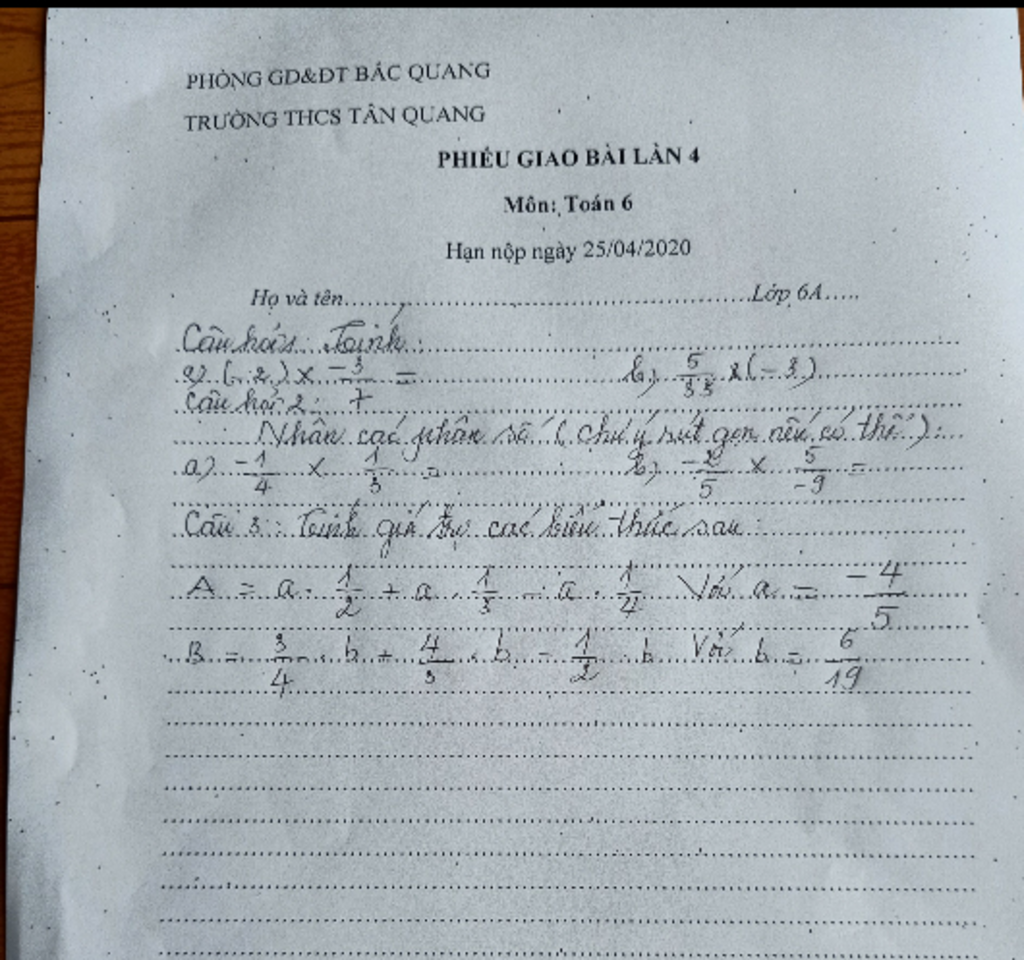 PHÒNG GD&ĐT BẮC QUANG
TRƯỜNG THCS TÂN QUANG
PHIẾU GIAO BÀI LẦN 4
Môn: Toán 6
Hạn nộp ngày 25/04/2020
Họ và tên..........................Lớp 6A.....
Câu hỏi 1: Tính:
a) (-2) x -3/7 = b) 5/33 x (-3)
Câu hỏi 2:
Nhân các phân số (chú ý rút gọn nếu có thể):
a) -1/4 x 1/3 = b) -2/5 x 5/-9 =
Câu 3: Tính giá trị các biểu thức sau:
A = a . 1/2 + a . 1/3 - a . 1/4 Với a = -4/5
B = 3/4 . b + 4/3 . b - 1/2 . b Với b = 6/19